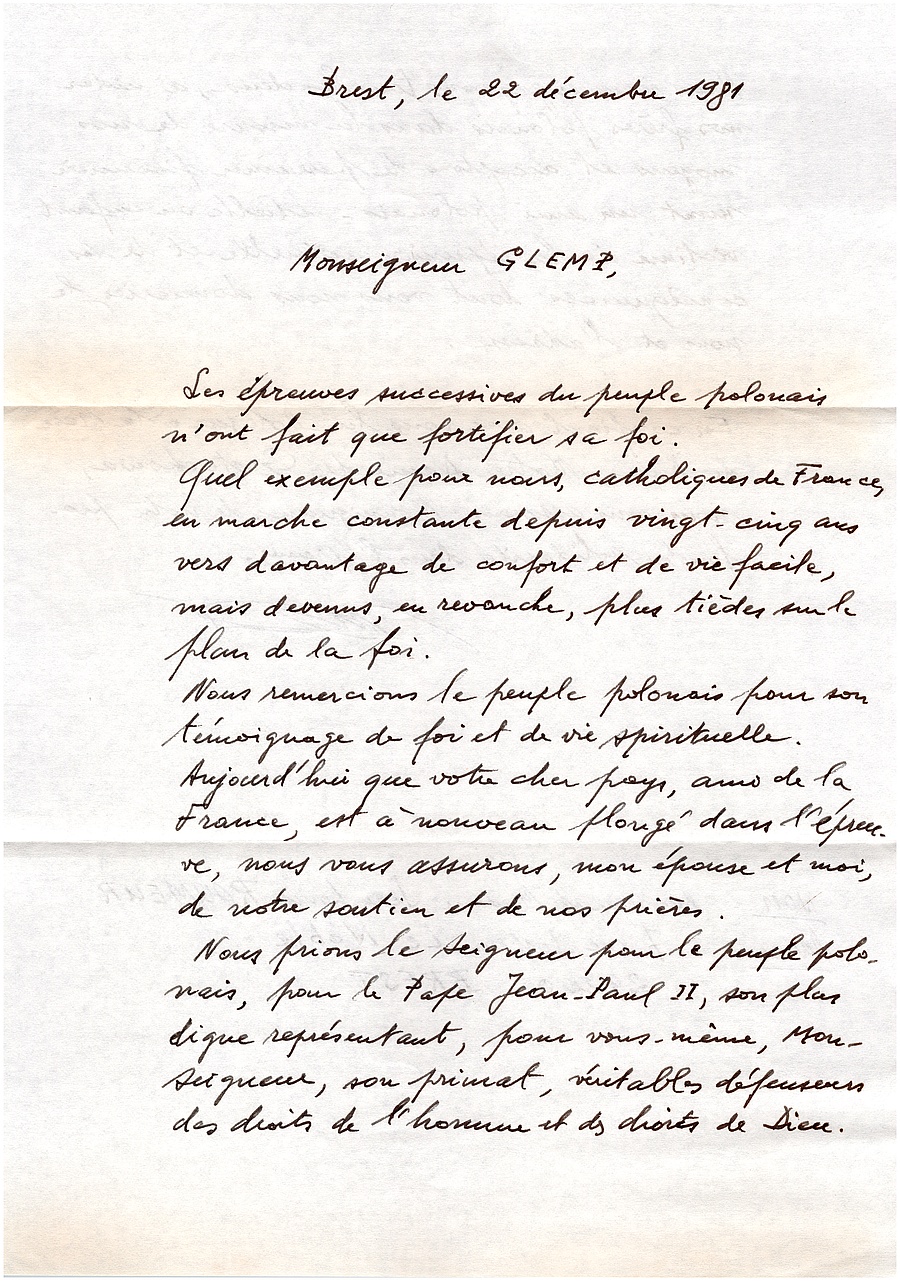 Brest, le 22 décembre 1981
Monseigneur GLEMP,
Les épreuves successives du peuple polonais
n'ont fait que fortifier sa foi.
Quel exemple pour nous, catholiques de France,
en marche constante depuis vingt-cinq ans
vers davantage de confort et de vie facile,
mais devenus, en revanche, plus tièdes sur le
plan de la foi.
Nous remercions le peuple polonais pour son
témoignage de foi et de vie spirituelle.
Aujourd'hui que votre cher pays, ami de la
France, est à nouveau plongé dans l'épreu-
ve, nous vous assurons, mon épouse et moi,
de notre soutien et de nos prières.
Nous prions le Seigneur pour le peuple polo-
nais, pour le Pape Jean-Paul II, son plus
digne représentant, pour vous-même, Mon-
seigneur, son primat, véritables défenseurs
des droits de l'homme et des droits de Dieu.